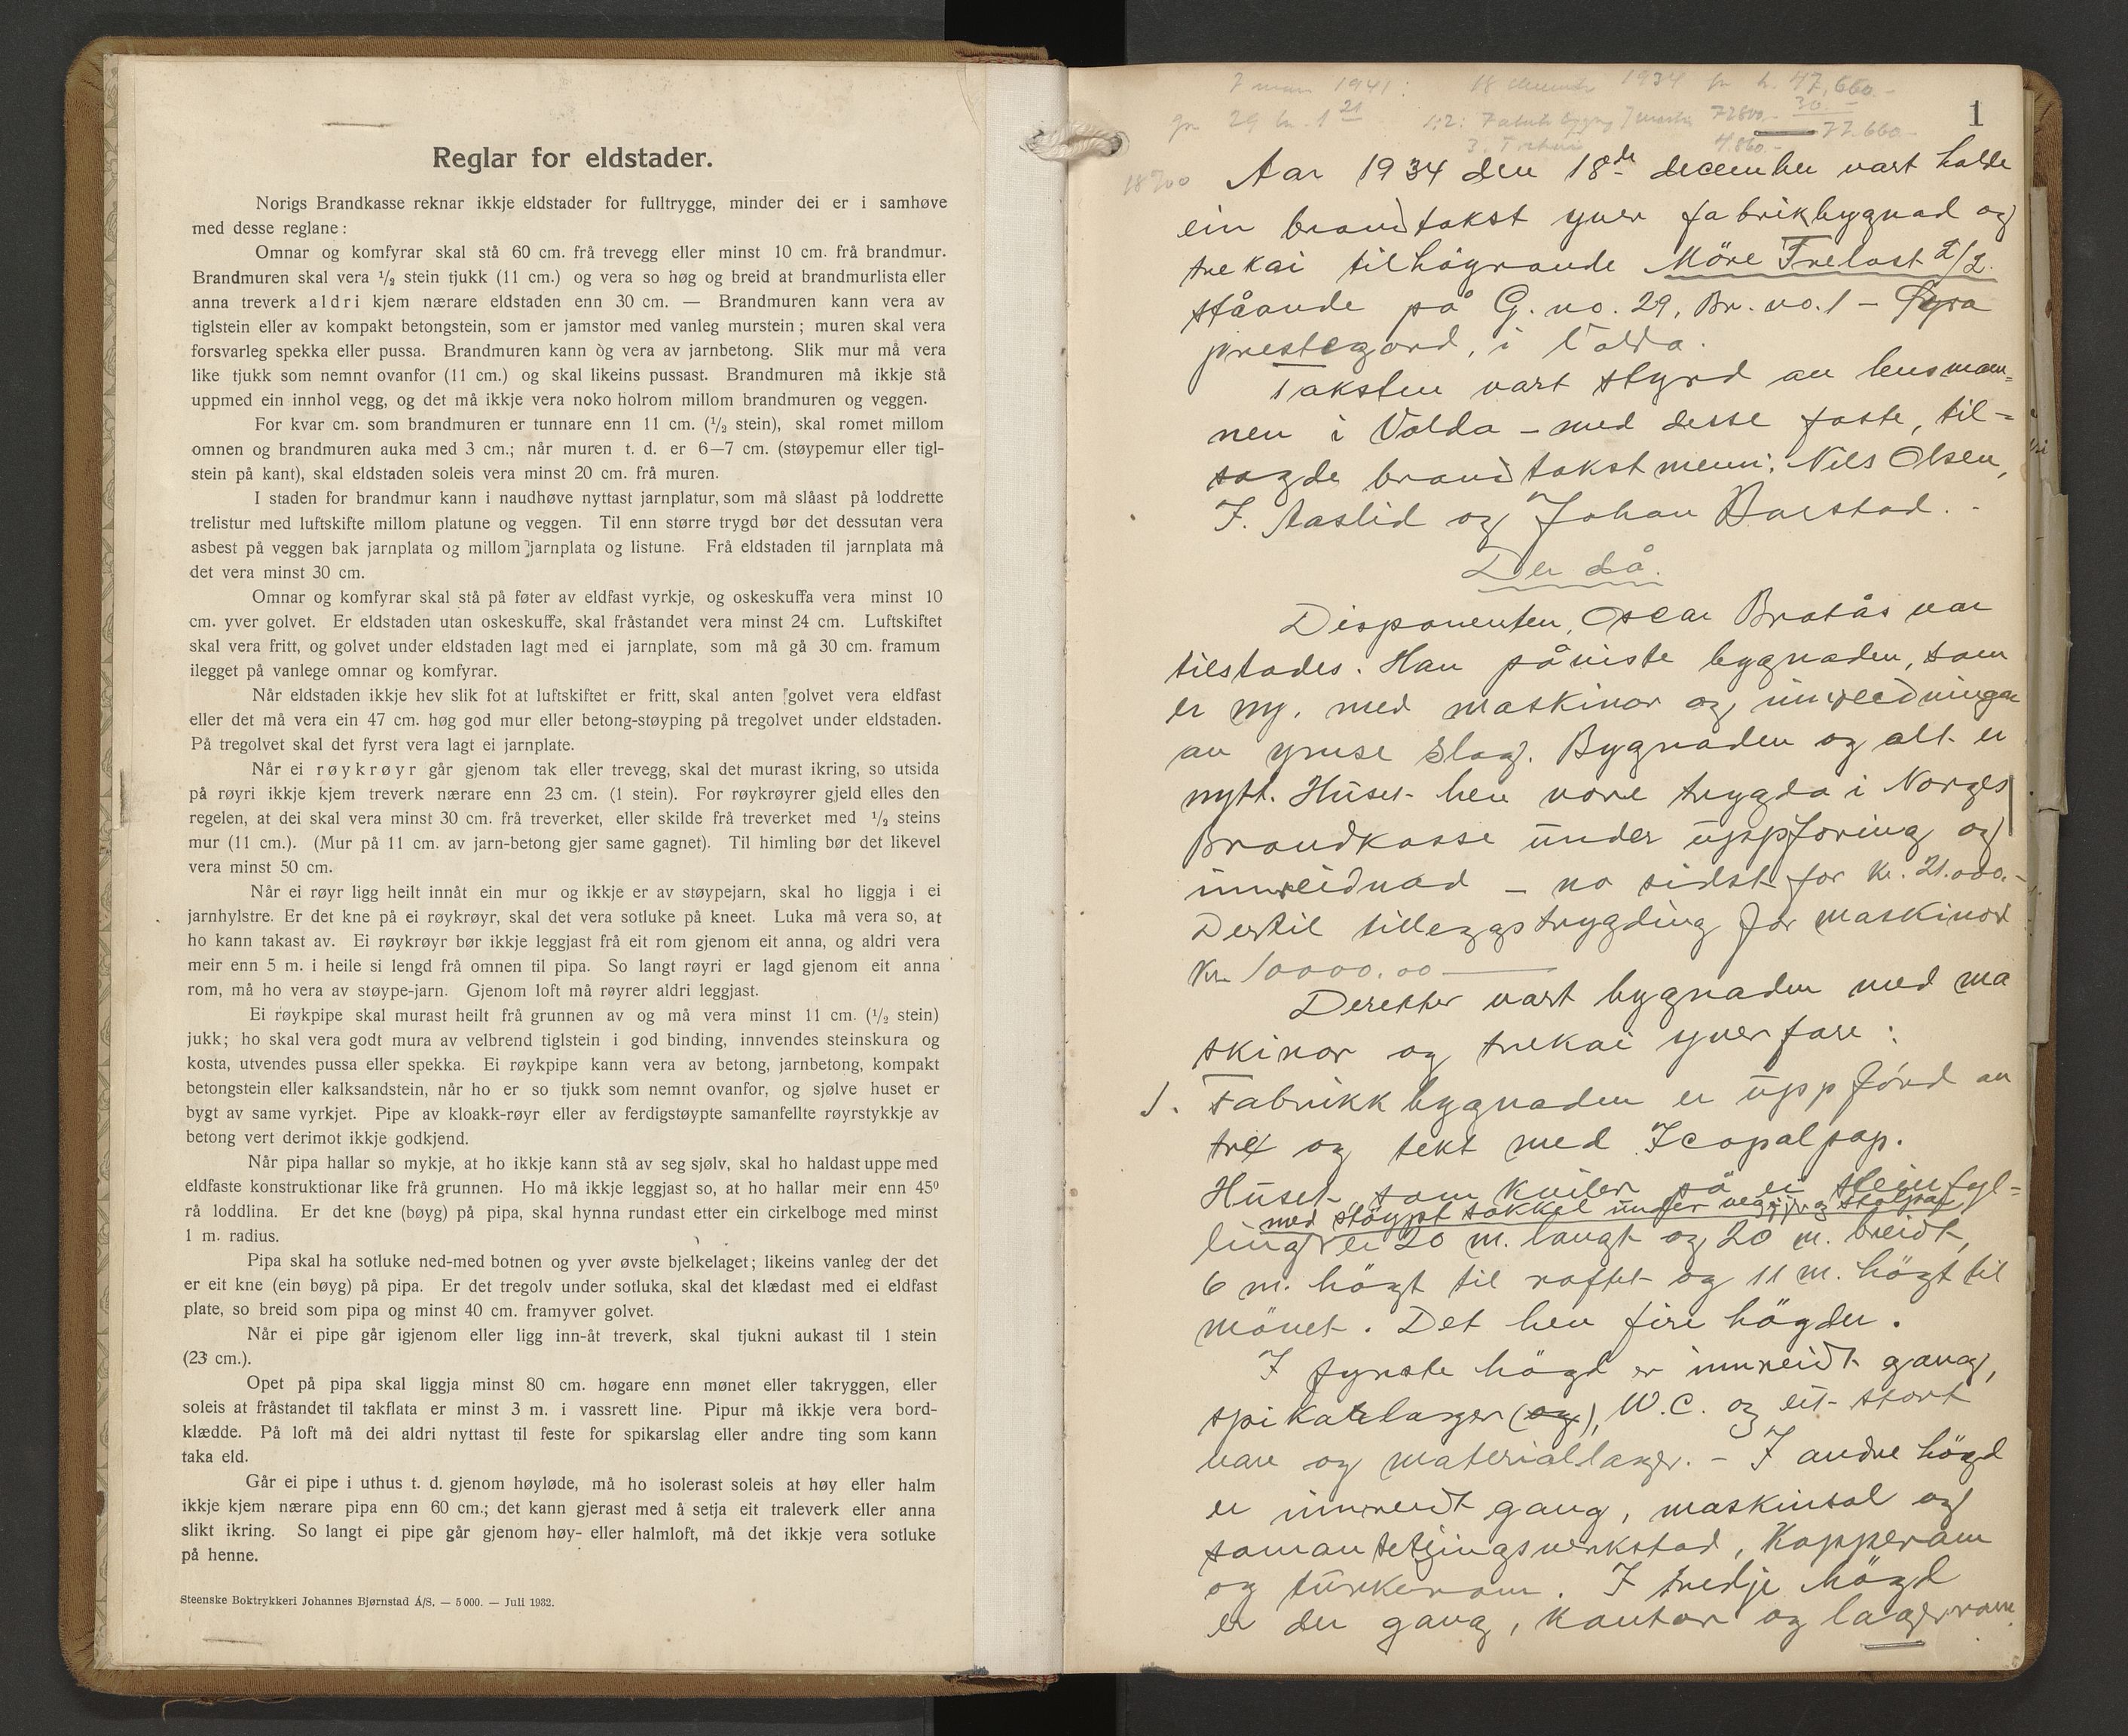 Reglar for eldstader.
Norigs Brandkasse reknar ikkje eldstader for fulltrygge, minder dei er i samhøve
med desse reglane:
Omnar og komfyrar skal stå 60 cm. frå trevegg eller minst 10 cm. frå brandmur.
Brandmuren skal vera ½ stein tjukk (11 cm.) og vera so høg og breid at brandmurlista eller
anna treverk aldri kjem nærare eldstaden enn 30 cm. — Brandmuren kann vera av
tiglstein eller av kompakt betongstein, som er jamstor med vanleg murstein; muren skal vera
forsvarleg spekka eller pussa. Brandmuren kann òg vera av jarnbetong. Slik mur må vera
like tjukk som nemnt ovanfor (11 cm.) og skal likeins pussast. Brandmuren må ikkje stå
uppmed ein innhol vegg, og det må ikkje vera noko holrom millom brandmuren og veggen.
For kvar cm. som brandmuren er tunnare enn 11 cm. (½ stein), skal romet millom
omnen og brandmuren auka med 3 cm.; når muren t. d. er 6—7 cm. (støypemur eller tigl-
stein på kant), skal eldstaden soleis vera minst 20 cm. frå muren.
I staden for brandmur kann i naudhøve nyttast jarnplatur, som må slåast på loddrette
trelistur med luftskifte millom platune og veggen. Til enn større trygd bør det dessutan vera
asbest på veggen bak jarnplata og millom jarnplata og listune. Frå eldstaden til jarnplata må
det vera minst 30 cm.
Omnar og komfyrar skal stå på føter av eldfast vyrkje, og oskeskuffa vera minst 10
cm. yver golvet. Er eldstaden utan oskeskuffe, skal fråstandet vera minst 24 cm. Luftskiftet
skal vera fritt, og golvet under eldstaden lagt med ei jarnplate, som må gå 30 cm. framum
ilegget på vanlege omnar og komfyrar.
Når eldstaden ikkje hev slik fot at luftskiftet er fritt, skal anten golvet vera eldfast
eller det må vera ein 47 cm. høg god mur eller betong-støyping på tregolvet under eldstaden.
På tregolvet skal det fyrst vera lagt ei jarnplate.
Når ei røykrøyr går gjenom tak eller trevegg, skal det murast ikring, so utsida
på røyri ikkje kjem treverk nærare enn 23 cm. (1 stein). For røykrøyrer gjeld elles den
regelen, at dei skal vera minst 30 cm. frå treverket, eller skilde frå treverket med ½ steins
mur (11 cm.). (Mur på 11 cm. av jarn-betong gjer same gagnet). Til himling bør det likevel
vera minst 50 cm.
Når ei røyr ligg heilt innåt ein mur og ikkje er av støypejarn, skal ho liggja i ei
jarnhylstre. Er det kne på ei røykrøyr, skal det vera sotluke på kneet. Luka må vera so, at
ho kann takast av. Ei røykrøyr bør ikkje leggjast frå eit rom gjenom eit anna, og aldri vera
meir enn 5 m. i heile si lengd frå omnen til pipa. So langt røyri er lagd gjenom eit anna
rom, må ho vera av støype-jarn. Gjenom loft må røyrer aldri leggjast.
Ei røykpipe skal murast heilt frå grunnen av og må vera minst 11 cm. (½ stein)
jukk; ho skal vera godt mura av velbrend tiglstein i god binding, innvendes steinskura og
kosta, utvendes pussa eller spekka. Ei røykpipe kann vera av betong, jarnbetong, kompakt
betongstein eller kalksandstein, når ho er so tjukk som nemnt ovanfor, og sjølve huset er
bygt av same vyrkjet. Pipe av kloakk-røyr eller av ferdigstøypte samanfellte røyrstykkje av
betong vert derimot ikkje godkjend.
Når pipa hallar so mykje, at ho ikkje kann stå av seg sjølv, skal ho haldast uppe med
eldfaste konstruktionar like frå grunnen. Ho må ikkje leggjast so, at ho hallar meir enn 45⁰
rå loddlina. Er det kne (bøyg) på pipa, skal hynna rundast etter ein cirkelboge med minst
1 m. radius.
Pipa skal ha sotluke ned-med botnen og yver øvste bjelkelaget; likeins vanleg der det
er eit kne (ein bøyg) på pipa. Er det tregolv under sotluka, skal det klædast med ei eldfast
plate, so breid som pipa og minst 40 cm. framyver golvet.
Når ei pipe går igjenom eller ligg inn-åt treverk, skal tjukni aukast til 1 stein
(23 cm.).
Opet på pipa skal liggja minst 80 cm. høgare enn mønet eller takryggen, eller
soleis at fråstandet til takflata er minst 3 m. i vassrett line. Pipur må ikkje vera bord-
klædde. På loft må dei aldri nyttast til feste for spikarslag eller andre ting som kann
taka eld.
Går ei pipe i uthus t. d. gjenom høyløde, må ho isolerast soleis at høy eller halm
ikkje kjem nærare pipa enn 60 cm.; det kann gjerast med å setja eit traleverk eller anna
slikt ikring. So langt ei pipe går gjenom høy- eller halmloft, må det ikkje vera sotluke
på henne.
Steenske Boktrykkeri Johannes Bjørnstad A/S. — 5000. — Juli 1932.
7 mars 1941: 18 1934 kr. 47,660.-
gn 29 bn. 1 21 1:2: 72800,- 30.-
77.660-
3. 4.860.-
1
18700
Aar 1934 den 18de december vart halde
ein brandtakst yver fabrikbygnad og
trekai tilhøyrande Möre Trelast A/L.
ståande på G. no. 29, Br. no. 1 -
prestegard, i Volda.
Taksten vart styrd av lensman=
nen i Volda - med desse faste, til=
sagde brandtakstmenn: Nils Olsen,
I. Aaslid og Johan Barstad.
Der då.
Disponenten, Oscar Bratås var
tilstades. Han påviste bygnaden, som
er ny, med maskinor og innreidningar
av ymse slag. Bygnaden og alt er
nytt. Huset hev vore trygda i Norges
Brandkasse under uppføring og
innreidnad - no sidst for kr. 21.000.-
Dertil tilleggstrygding for maskinor
Kr. 10000.00
Deretter vart bygnaden med ma
skinor og trekai yverfare:
1. Fabrikkbygnaden er uppförd av
tre og tekt med Icopalpap.
Huset, som kviler på ei steinfyl=
med støypt sokkel under vegjir og stolpar
ling er 20 m. langt og 20 m. breidt,
6 m. högt til raftet og 11 m. högt til
mönet. Det hev fire högder.
I fyrste högd er innreidt gang,
spikarlager (og), W.C. og eit stort
vare og materiallager. - I andre högd
er innreidt gang, maskinsal og
samansetjingsverkstad, Kapperom
og turkerom. I tredje högd
er der gang, kontor og lagerrom.